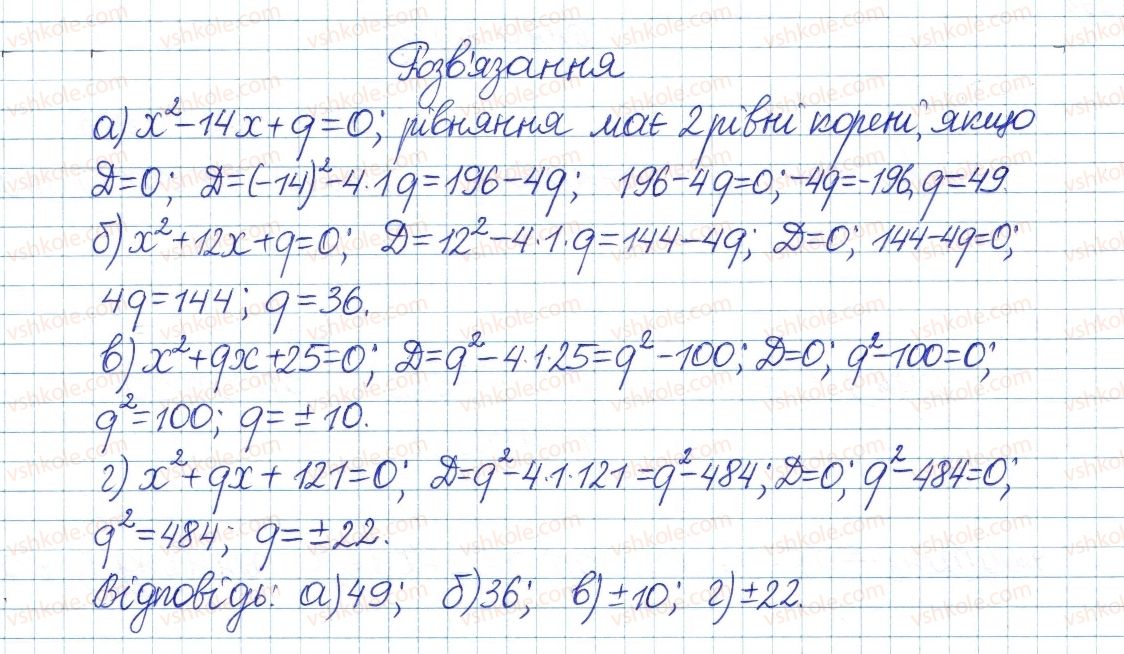 Розв'язання
а) x²-14x+q=0; рівняння має 2 рівні корені, якщо
D=0; D=(-14)²-4·1q=196-4q; 196-4q=0; -4q=-196, q=49
б) x²+12x+q=0; D=12²-4·1·q=144-4q; D=0; 144-4q=0;
4q=144; q=36.
в) x²+qx+25=0; D=q²-4·1·25=q²-100; D=0; q²-100=0;
q²=100; q=±10.
г) x²+qx+121=0; D=q²-4·1·121=q²-484; D=0; q²-484=0;
q²=484; q=±22.
Відповідь: а) 49; б) 36; в) ±10; г) ±22.
vshkole.com